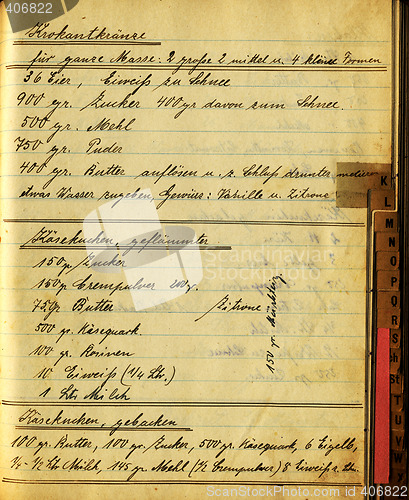 406822
Krokantkränze
für ganze Masse: 2 große 2 mittel u. 4 kleine Formen
36 Eier, Eiweiß zu Schnee
900 gr. Zucker 400 gr davon zum Schnee
500 gr. Mehl
750 gr. Puder
400 gr. Butter auflösen u. z. Schluß drunter
etwas Wasser zugeben, Gewürz: Vanille u. Zitrone
Käsekuchen, geflämmter
150 gr. Zucker
150 gr. Crempulver 200 gr.
75 gr. Butter Zitrone
500 gr. Käsequark
100 gr. Rosinen
10 Eiweiß (1/4 Ltr.)
1 Ltr. Milch
150 gr.
Käsekuchen, gebacken
100 gr. Butter, 100 gr. Zucker, 500 gr. Käsequark, 6 Eigelb,
Ltr. Milch, 145 gr. Mehl (1/2 Crempulver) 8 Eiweiß
K
L
M
N
O
P
Q
R
S
Sch
St
T
U
V
W
© Stockphotosecrets / StockFresh
406822